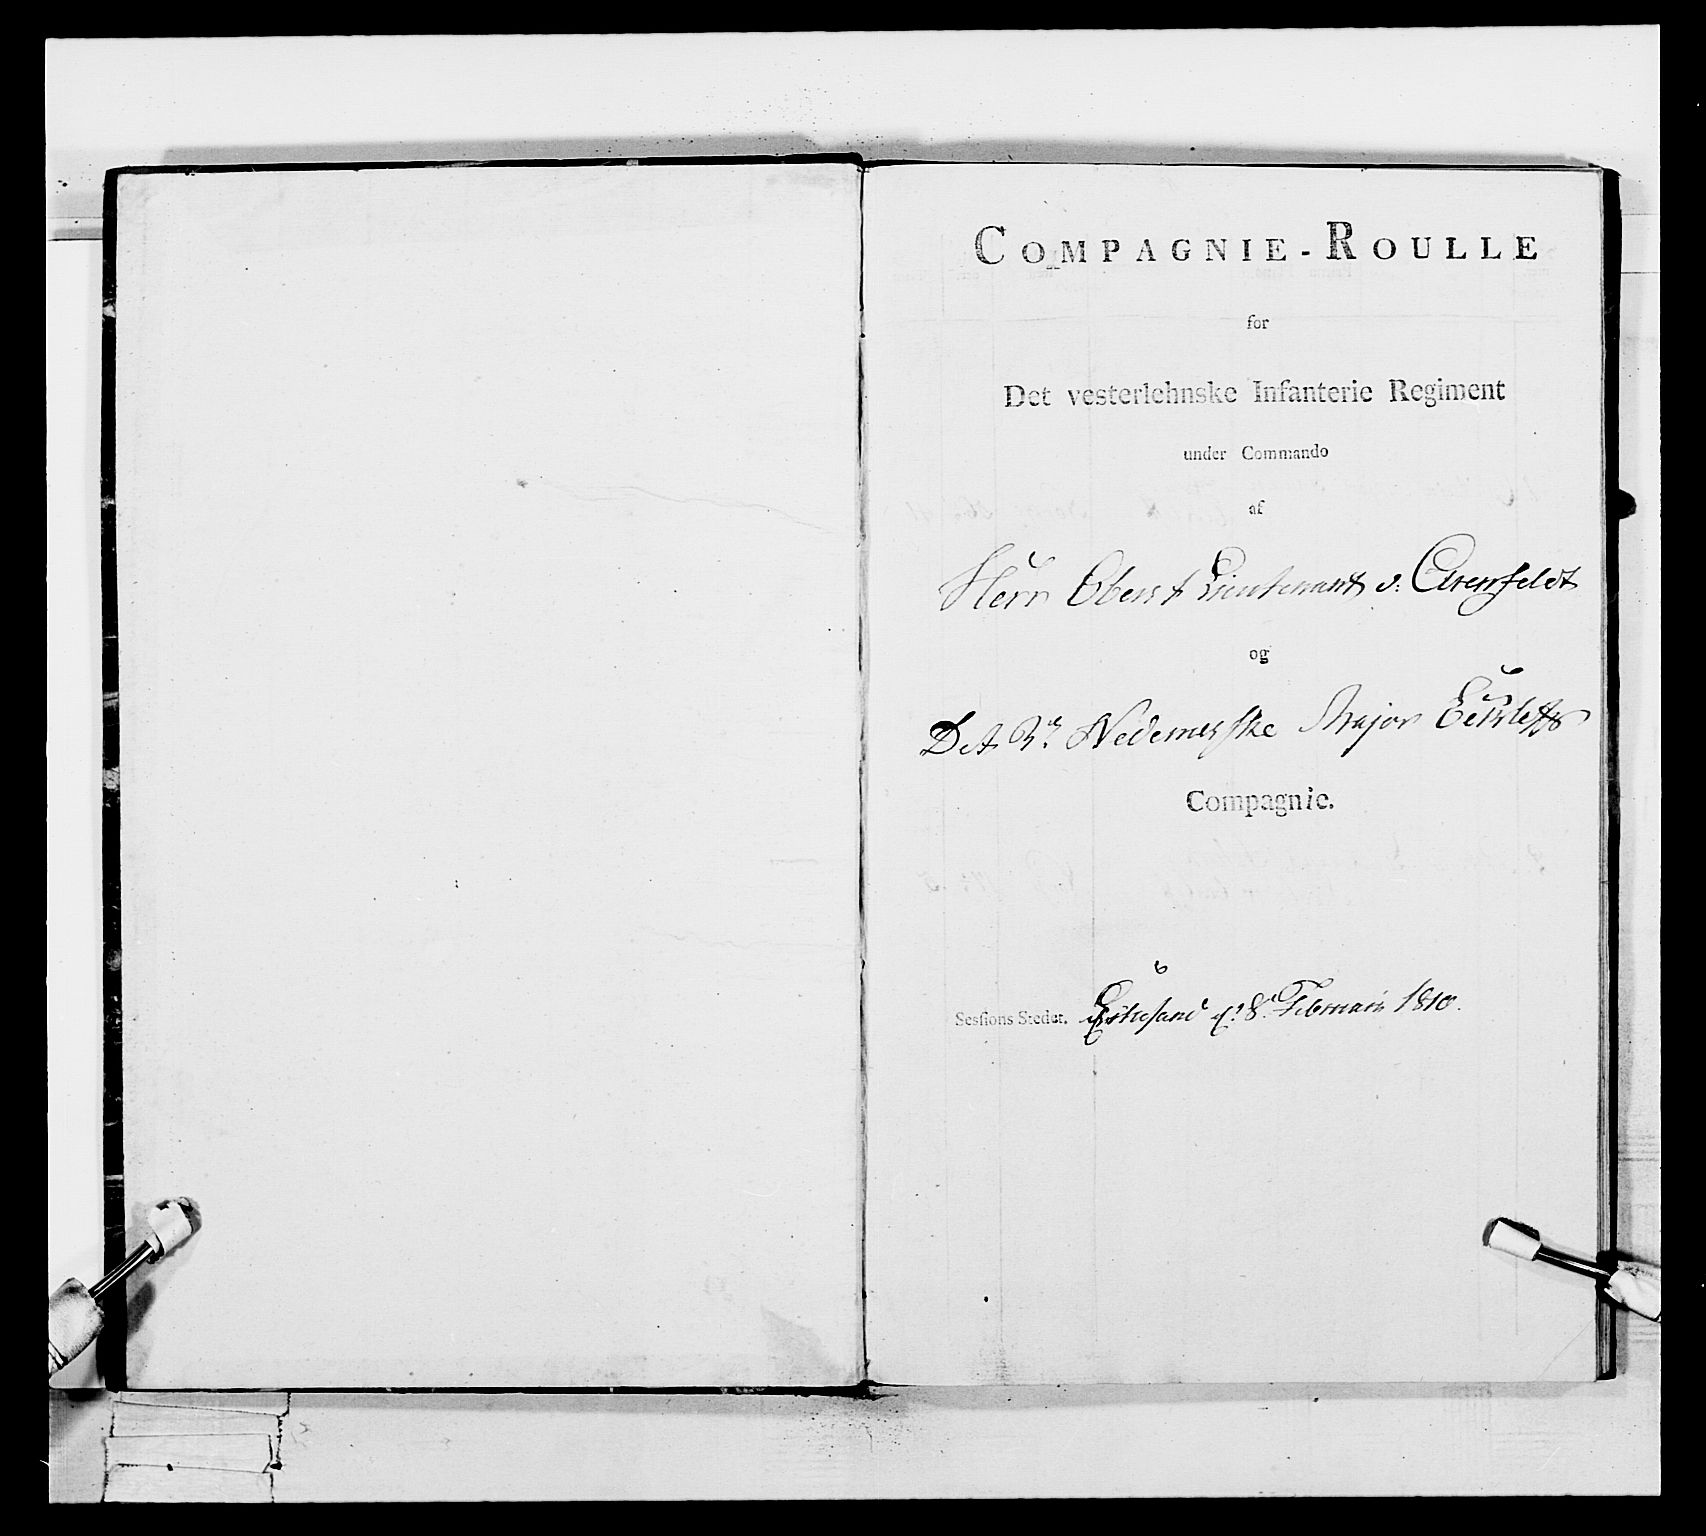 COMPAGNIE-ROULLE
for
Det vesterlehnske Infanterie Regiment
under Commando
af
Herr Oberst Lieutenant v: Arenfeldt
og
Det 3die Nedenesske Major
Compagnie.
Sessions Stedet. d: 8de Februarii 1810.